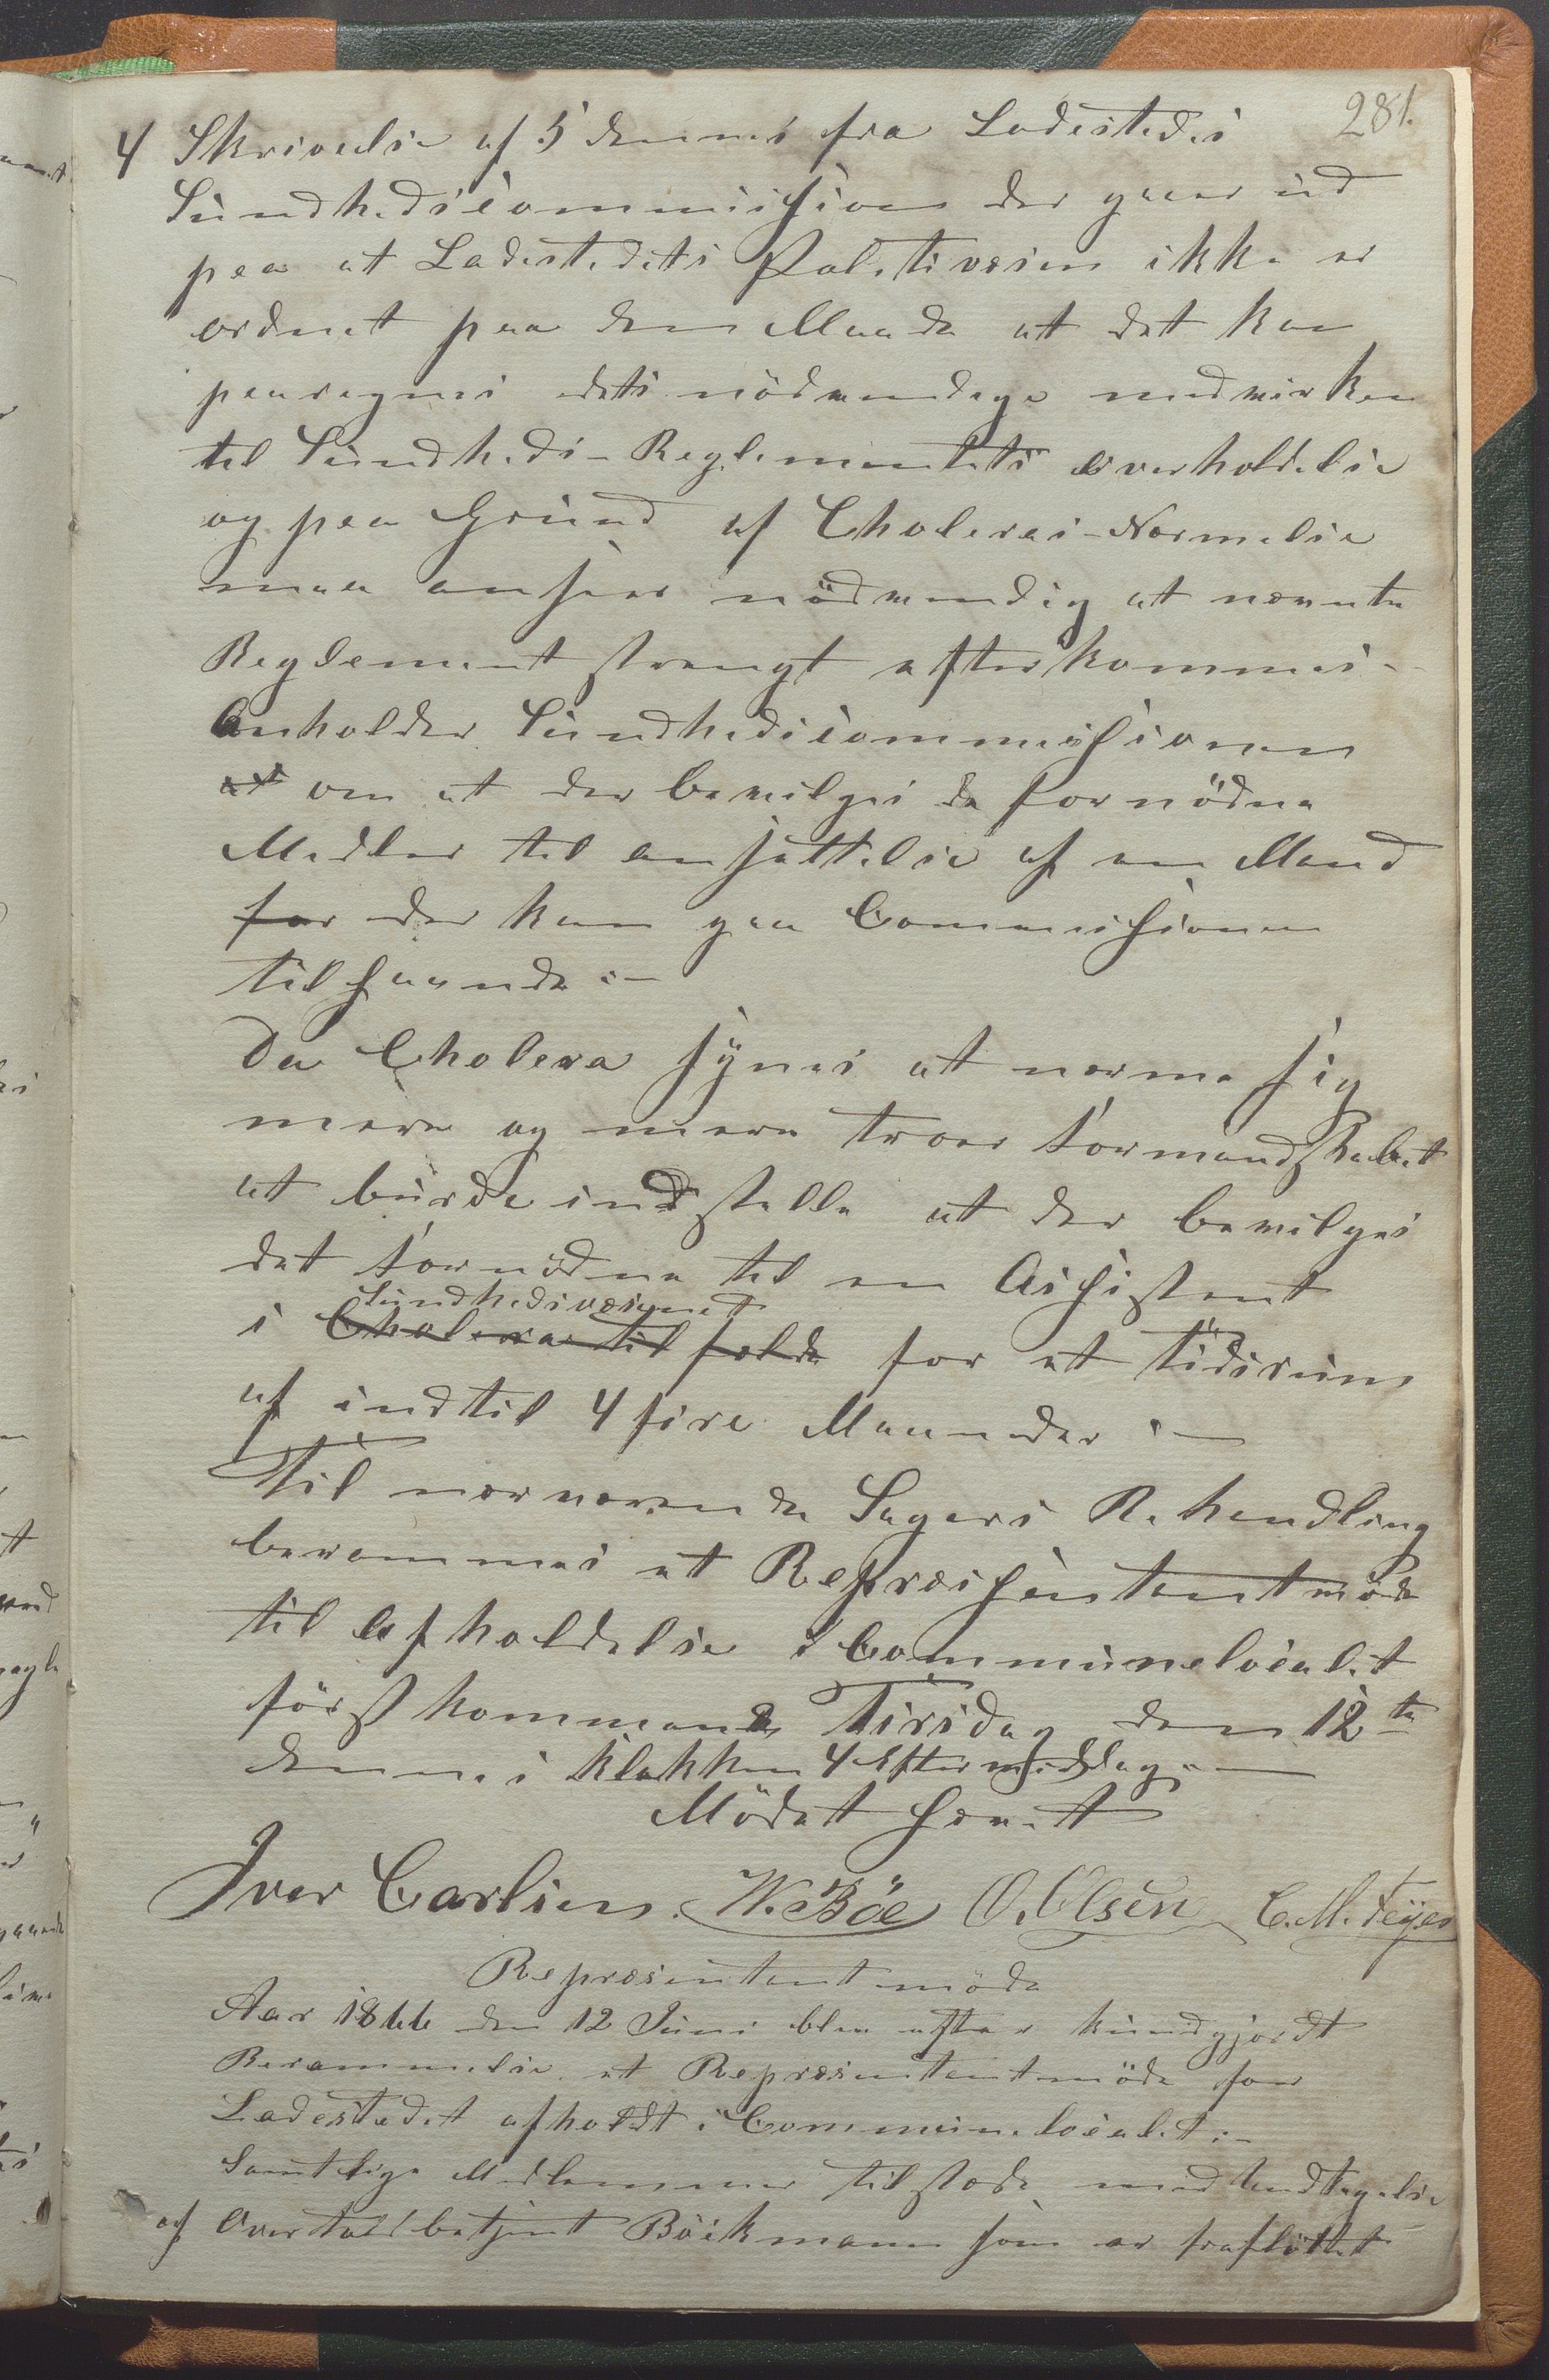 281.
4 Skrivelse af 5 dennes fra Ladestedes
Sundhedscommission der gaar ud
paa at Ladestedets Politivæsen ikke er
ordnet paa den Maade at det kan
paaregnes dets nödvendige medvirken
til Sundheds-Reglementets overholdelse
og paa Grund af Choleras-Nærmelse
maa ansees nödvendig at nævnte
Reglement strengt efterkommes -
Anholder Sundhedscommissionen
at om at der bevilges de fornödne
Midler til ansættelse af en Mand
for der kan gaa Commissionen
tilhaande :-
Da Cholera synes at nærme sig
mere og mere troer Formandskabet
at burde indstille at der bevilges
det fornödne til en Assistent
Sundhedsvæsenet
i Cholera tilfælde for et Tidsrum
af indtil 4 fire Maaneder :-
Til nærværende Sagers Behandling
berammes et Repræsentantmöde
til Afholdelse i Communelocalet
förstkommende Tirsdag den 12te
dennes Klokken 4 Eftermiddag :-
Mödet hævet
Iver Carlsen. W. Böe O. Olsen C. M. Feyer
Repræsentantmöde
Aar 1866 den 12 Juni blev efter kundgjordt
Berammelse et Repræsentantmöde for
Ladestedet afholdt i Communelocalet :-
Samtlige Medlemmer tilstede med Undtagelse
af Overtoldbetjent Böckmann som er fraflöttet